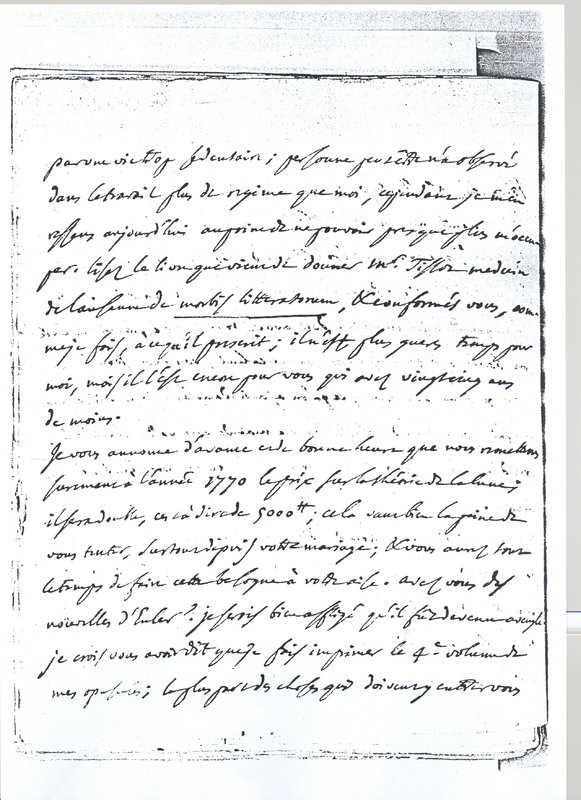 par une vie trop sedentaire ; personne peutêtre n'a observé
dans le travail plus de regime que moi, cependant je m'en
ressens aujourd'hui au point de ne pouvoir presque plus m'occu
per. lisez le livre que vient de donner Mr. Tissot medecin
de lausanne de morbis litteratorum, & conformés vous, com-
me je fais, à ce qu'il prescrit ; il n'est plus gueres temps pour
moi, mais il l'est encore pour vous qui avez vingt cinq ans
de moins.
Je vous annonce d'avance et de bonne heure que nous remettons
surement à l'année 1770 le prix sur la théorie de la lune ;
il sera double, c'est à dire de 5000 ₶, cela vaut bien la peine de
vous tenter, surtout depuis votre mariage ; & vous aurez tout
le temps de faire cette besogne à votre aise. avez vous des
nouvelles d'Euler ? je serois bien affligé qu'il fût devenu aveugle
je crois vous avoir dit que je fais imprimer le 4e. volume de
mes opuscules ; la plus part des choses qui doivent y entrer vous